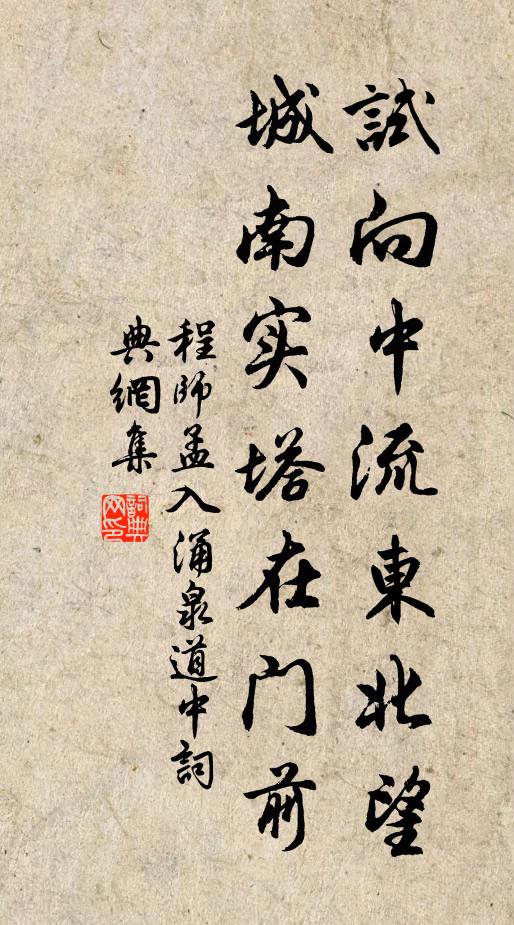 試向中流東北望
城南实塔在門前
程師孟入涌泉道中詞
典網集
詞典網印